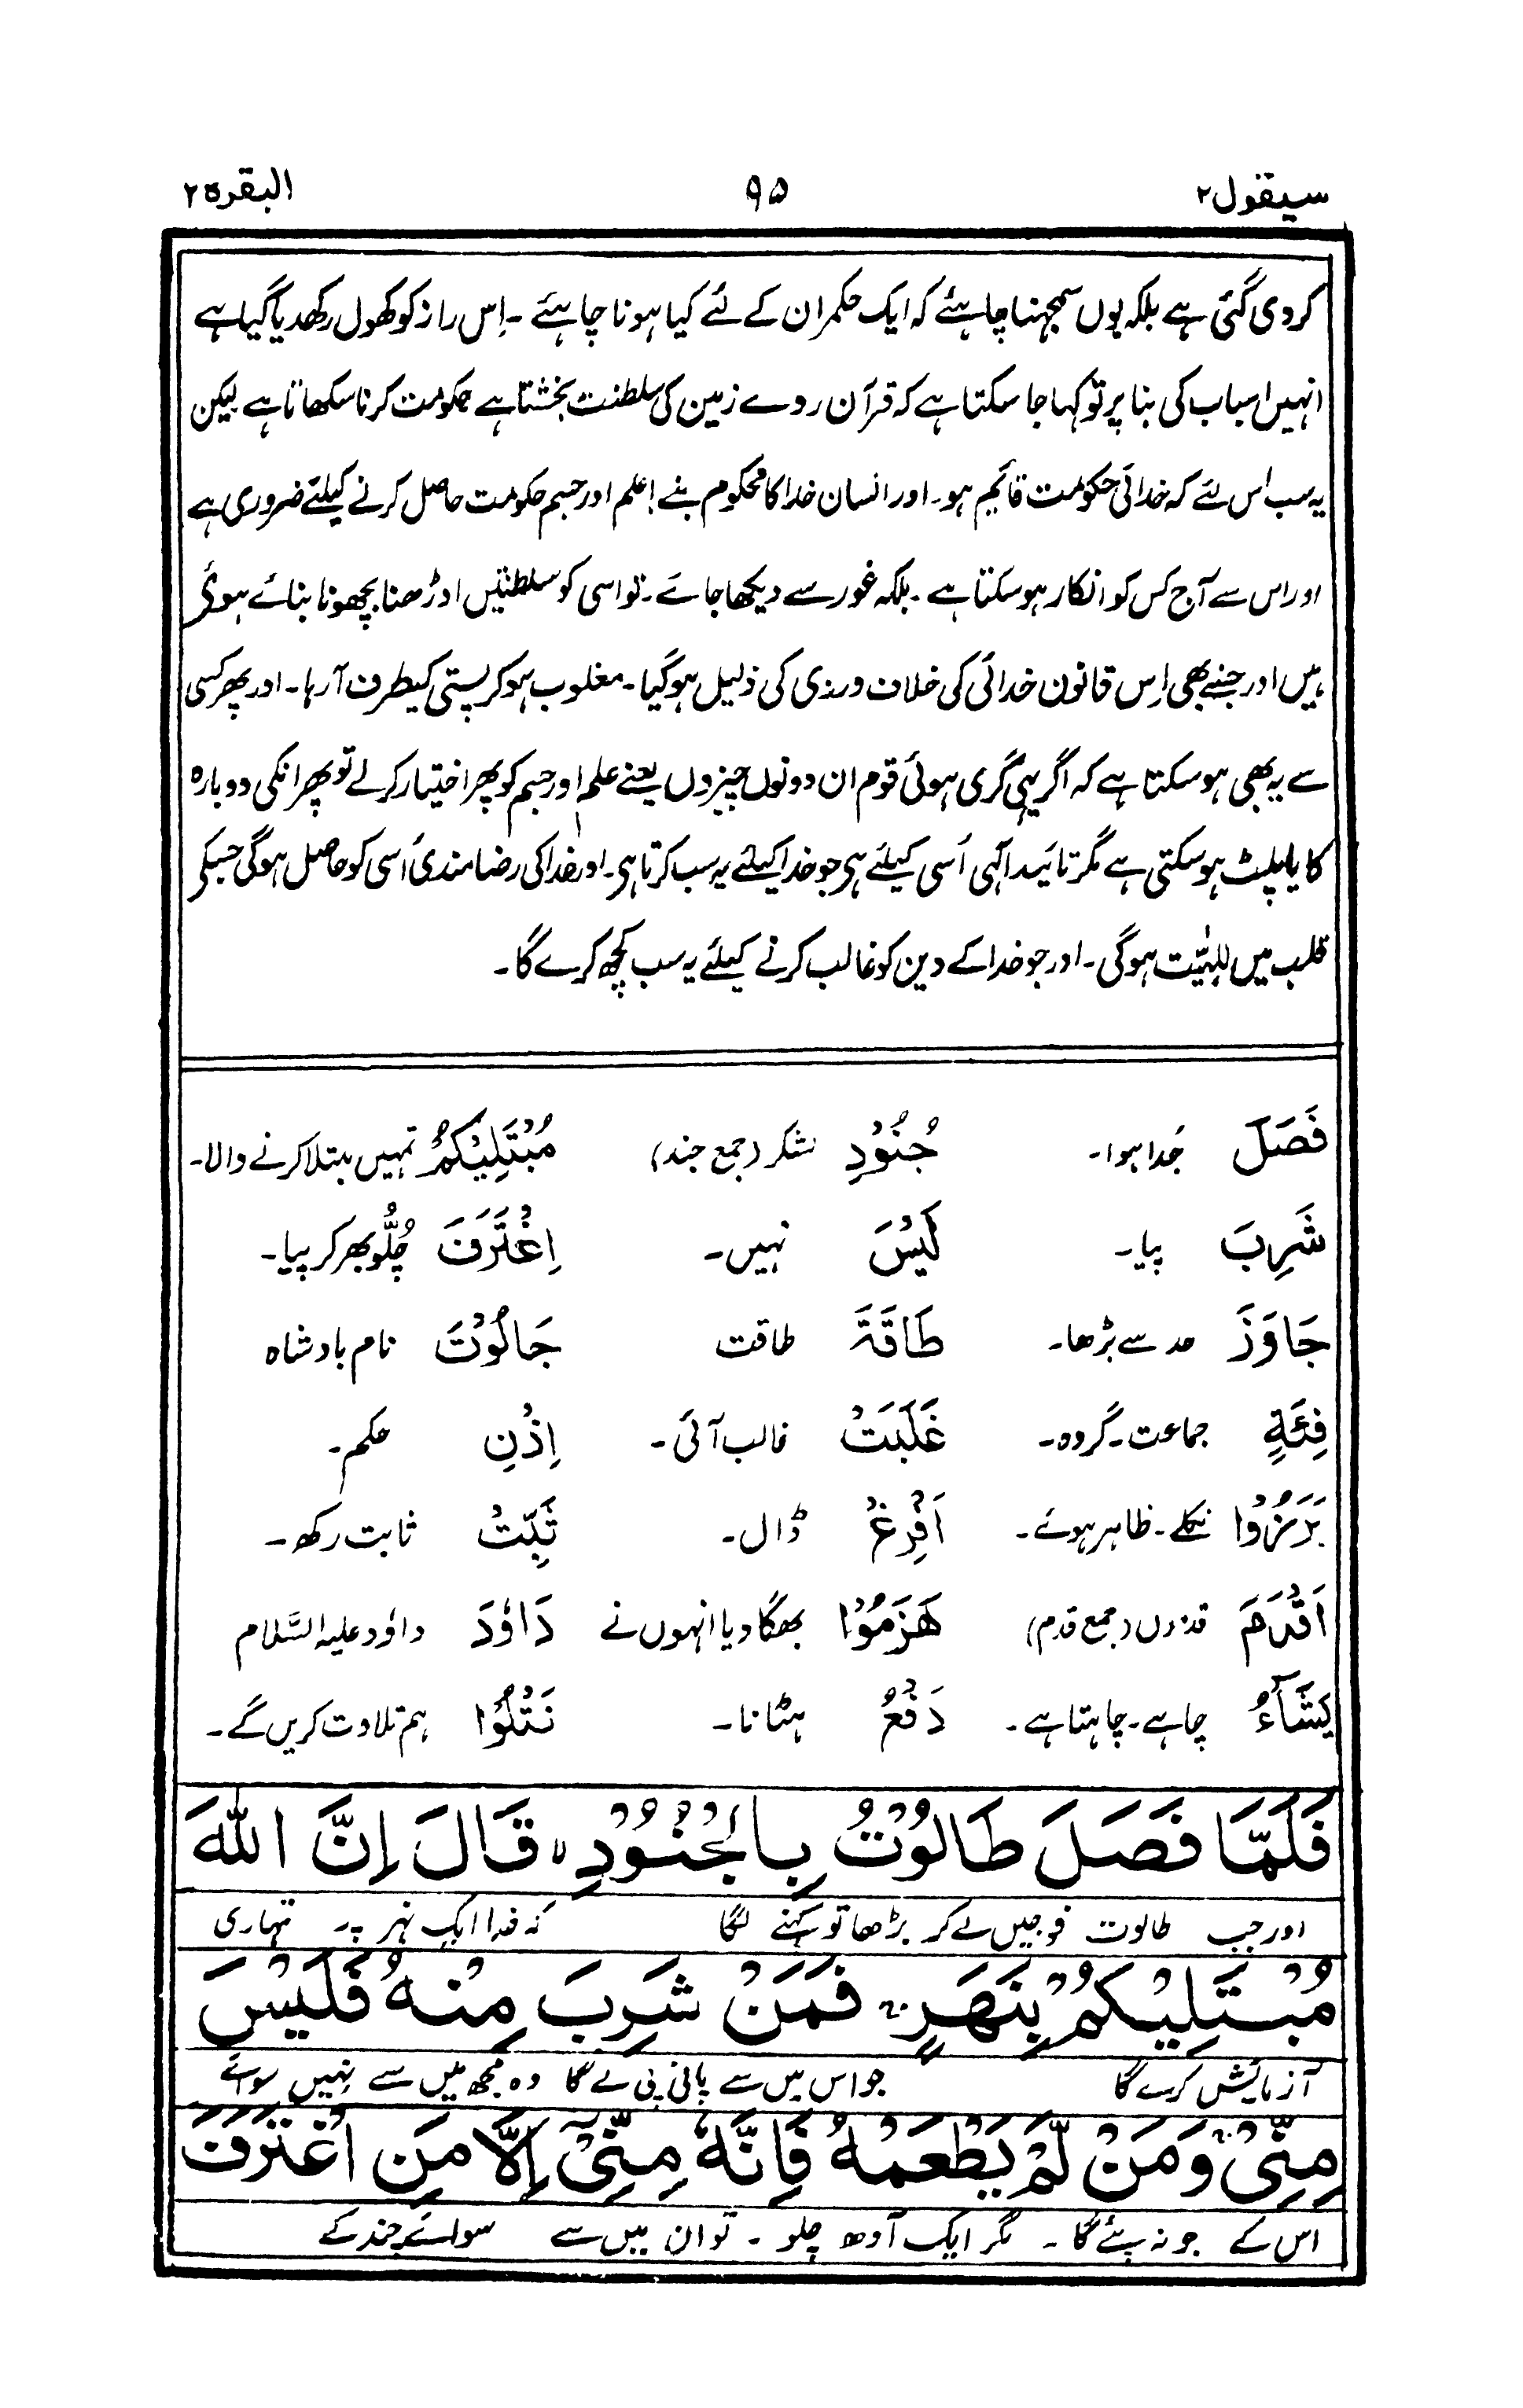 سیقول ۲ ۹۵ البقرہ ۲
کردی گئی ہے بلکہ یوں سمجہنا چاہئے کہ ایک حکمران کے لئے کیا ہونا چاہئے ۔ اِس راز کو کھول رکھدیا گیا ہے
انہیں اسباب کی بنا پر تو کہا جا سکتا ہے کہ قرآن روے زمین کی سلطنت بخشتا ہے حکومت کرنا سکھاتا ہے لیکن
یہ سب اس لئے کہ خدائی حکومت قائم ہو۔ اور انسان خدا کا محکوم بنے ! علم اور جسم حکومت حاصل کرنے کیلئے ضروری ہے
اور اس سے آج کس کو انکار ہو سکتا ہے ۔ بلکہ غور سے دیکھا جائے ۔ تو اسی کو سلطنتیں اوڑھنا بچھونا بنائے ہوئے
ہیں اور جنے بھی اِس قانون خدائی کی خلاف ورزی کی ذلیل ہو گیا ۔ مغلوب ہو کر پستی کیطرف آ رہا ۔ اور پھر کسی
سے یہ بھی ہو سکتا ہے کہ اگر یہی گری ہوئی قوم ان دونوں چیزوں یعنے علم اور جسم کو پھر اختیار کر لے تو پھر انکی دوبارہ
کایا پلٹ ہو سکتی ہے مگر تائید الٰہی اُسی کیلئے ہی جو خدا کیلئے یہ سب کرتا ہی ۔ اور خدا کی رضا مندی اُسی کو حاصل ہوگی جسکے
قلب میں للہیّت ہو گی ۔ اور جو خدا کے دین کو غالب کرنے کیلئے یہ سب کچھ کرے گا ۔
فَصَلَ جُدا ہوا۔ جُنُوْدِ لشکر (جمع جند) مُبْتَلِیْکُمْ تمہیں مبتلا کرنے والا۔
شَرِبَ پیا۔ لَیْسَ نہیں۔ اِغْتَرَفَ چُلُّو بھر کر پیا۔
جَاوَزَ حد سے بڑھا۔ طَاقَۃَ طاقت جَالُوْتَ نام بادشاہ
فِئَۃٍ جماعت۔ گروہ۔ غَلَبَتْ غالب آئی۔ اِذْنِ حکم۔
بَرَزُوْا نکلے۔ ظاہر ہوئے۔ اَفْرِغْ ڈال۔ ثَبِّتْ ثابت رکھ۔
اَقْدَامَ قدموں (جمع قدم) ھَزَمُوْا بھگا دیا انہوں نے دَاوٗدَ داوٗد علیہ السَّلام
یَشَآءُ چاہے۔ چاہتا ہے۔ دَفْعُ ہٹانا۔ نَتْلُوْا ہم تلاوت کریں گے۔
فَلَمَّا فَصَلَ طَالُوْتُ بِالْجُنُوْدِ ۙ قَالَ اِنَّ اللّٰہَ
اور جب طالوت فوجیں لے کر بڑھا تو کہنے لگا کہ خدا ایک نہر پر تمہاری
مُبْتَلِیْکُمْ بِنَھَرٍ ۚ فَمَنْ شَرِبَ مِنْہُ فَلَیْسَ
آزمایش کرے گا جو اس میں سے پانی پی لے گا وہ مجھ میں سے نہیں سوائے
مِنِّیْ ۚ وَمَنْ لَّمْ یَطْعَمْہُ فَاِنَّہٗ مِنِّیْٓ اِلَّا مَنِ اغْتَرَفَ
اس کے جو نہ پئے گا ۔ مگر ایک آدھ چلو ۔ تو ان میں سے سوائے چند کے